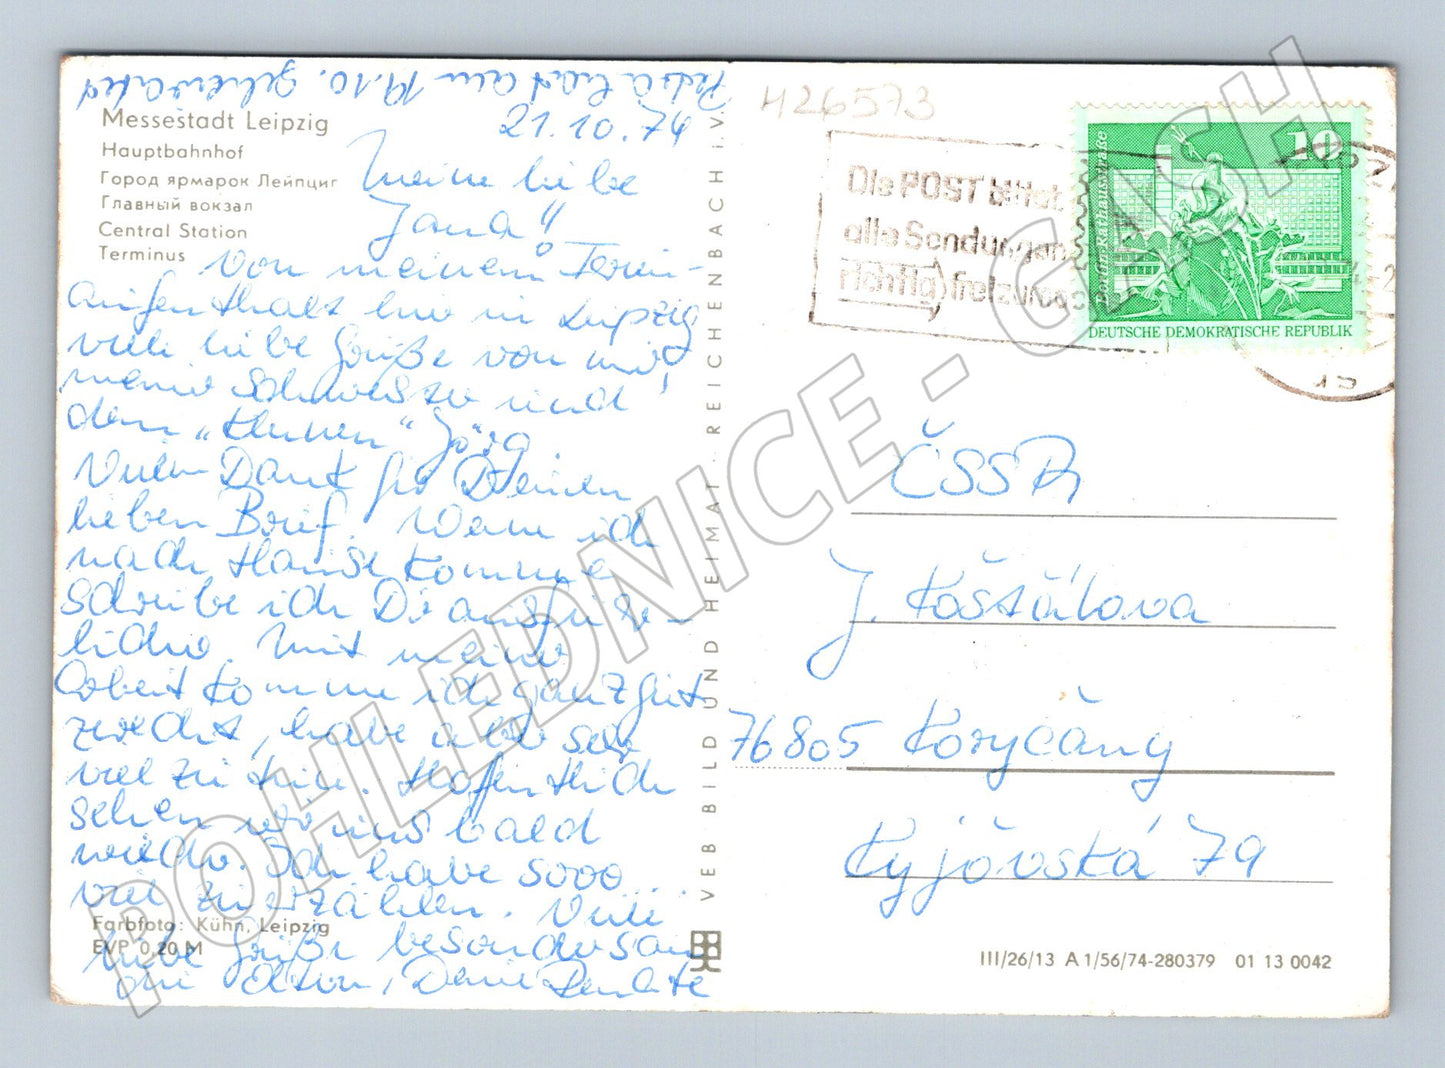 Petra hat am 19.10. geheiratet
21.10.74
Messestadt Leipzig
Hauptbahnhof
Город ярмарок Лейпциг
Главный вокзал
Central Station
Terminus
Meine liebe
Jana!
Von meinem Ferien-
aufenthalt hier in Leipzig
viele liebe Grüße von mir,
meiner Schwester und
dem „kleinen“ Jörg
Vielen Dank für Deinen
lieben Brief. Wenn ich
nach Hause komme
schreibe ich Dir ausführ-
licher. Mit meiner
Arbeit komme ich ganz gut
zurecht, habe aber sehr
viel zu tun. Hoffentlich
sehen wir uns bald
wieder. Ich habe sooo
viel zu erzählen. Viele
liebe Grüße besonders an
Deine Renate
Farbfoto: Kühn, Leipzig
EVP 0,20 M
VEB BILD UND HEIMAT REICHENBACH i. V.
426573
Die POST bittet
alle Sendungen
richtig freizumachen
10
Berlin-Rathausstraße
DEUTSCHE DEMOKRATISCHE REPUBLIK
ČSSR
J. Košťálova
76805 Koryčany
Kyjovská 79
III/26/13 A 1/56/74-280379 01 13 0042
POHLEDNICE - GASH